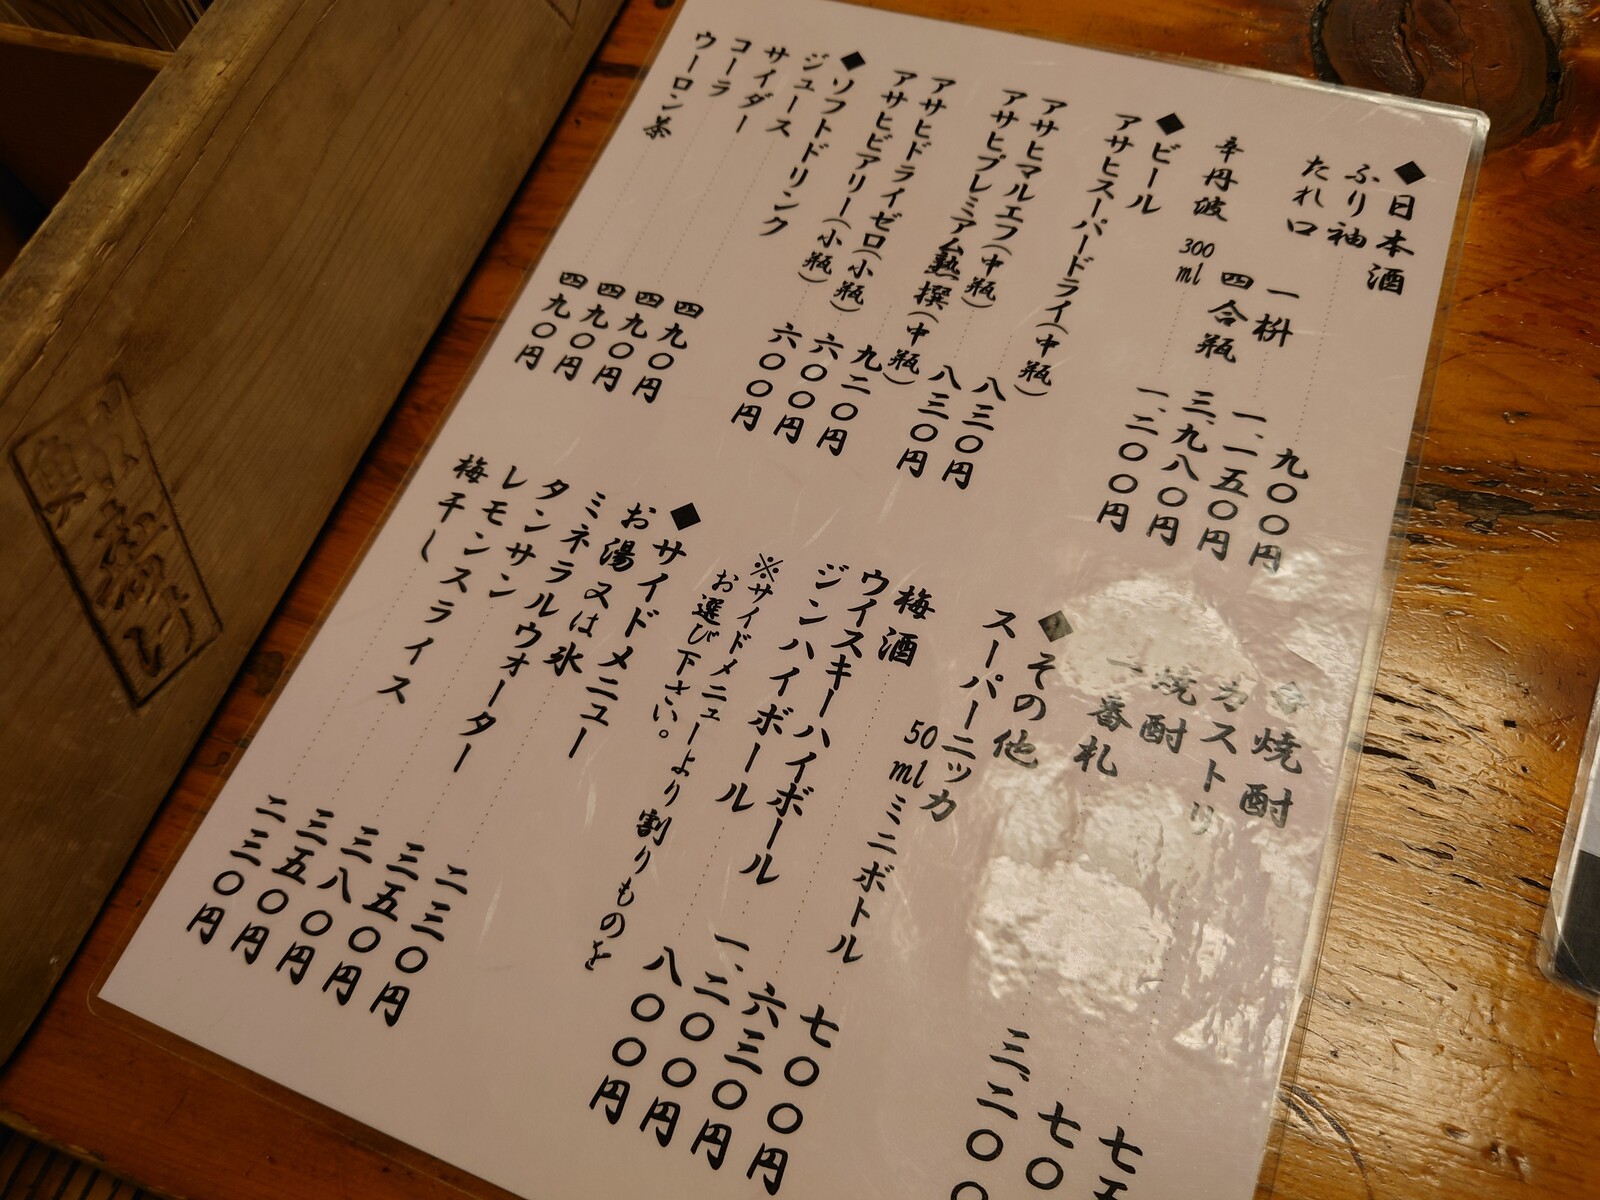 ◆日本酒
ふり袖 一枡 九〇〇円
たれ口 四合瓶 一、一五〇円
三、九八〇円
辛丹波 300ml 一、二〇〇円
◆ビール
アサヒスーパードライ(中瓶) 八三〇円
アサヒマルエフ(中瓶) 八三〇円
アサヒプレミアム熟撰(中瓶) 九二〇円
アサヒドライゼロ(小瓶) 六〇〇円
アサヒビアリー(小瓶) 六〇〇円
◆ソフトドリンク
ジュース 四九〇円
サイダー 四九〇円
コーラ 四九〇円
ウーロン茶 四九〇円
焼酎
カストリ
焼酎
一番札
◆その他
スーパーニッカ
50mlミニボトル 七〇〇円
梅酒 六三〇円
ウイスキーハイボール 一、二〇〇円
ジンハイボール 八〇〇円
※サイドメニューより割りものを
お選び下さい。
◆サイドメニュー
お湯又は氷 二三〇円
ミネラルウォーター 三五〇円
タンサン 三八〇円
レモンスライス 三五〇円
梅干し 二三〇円